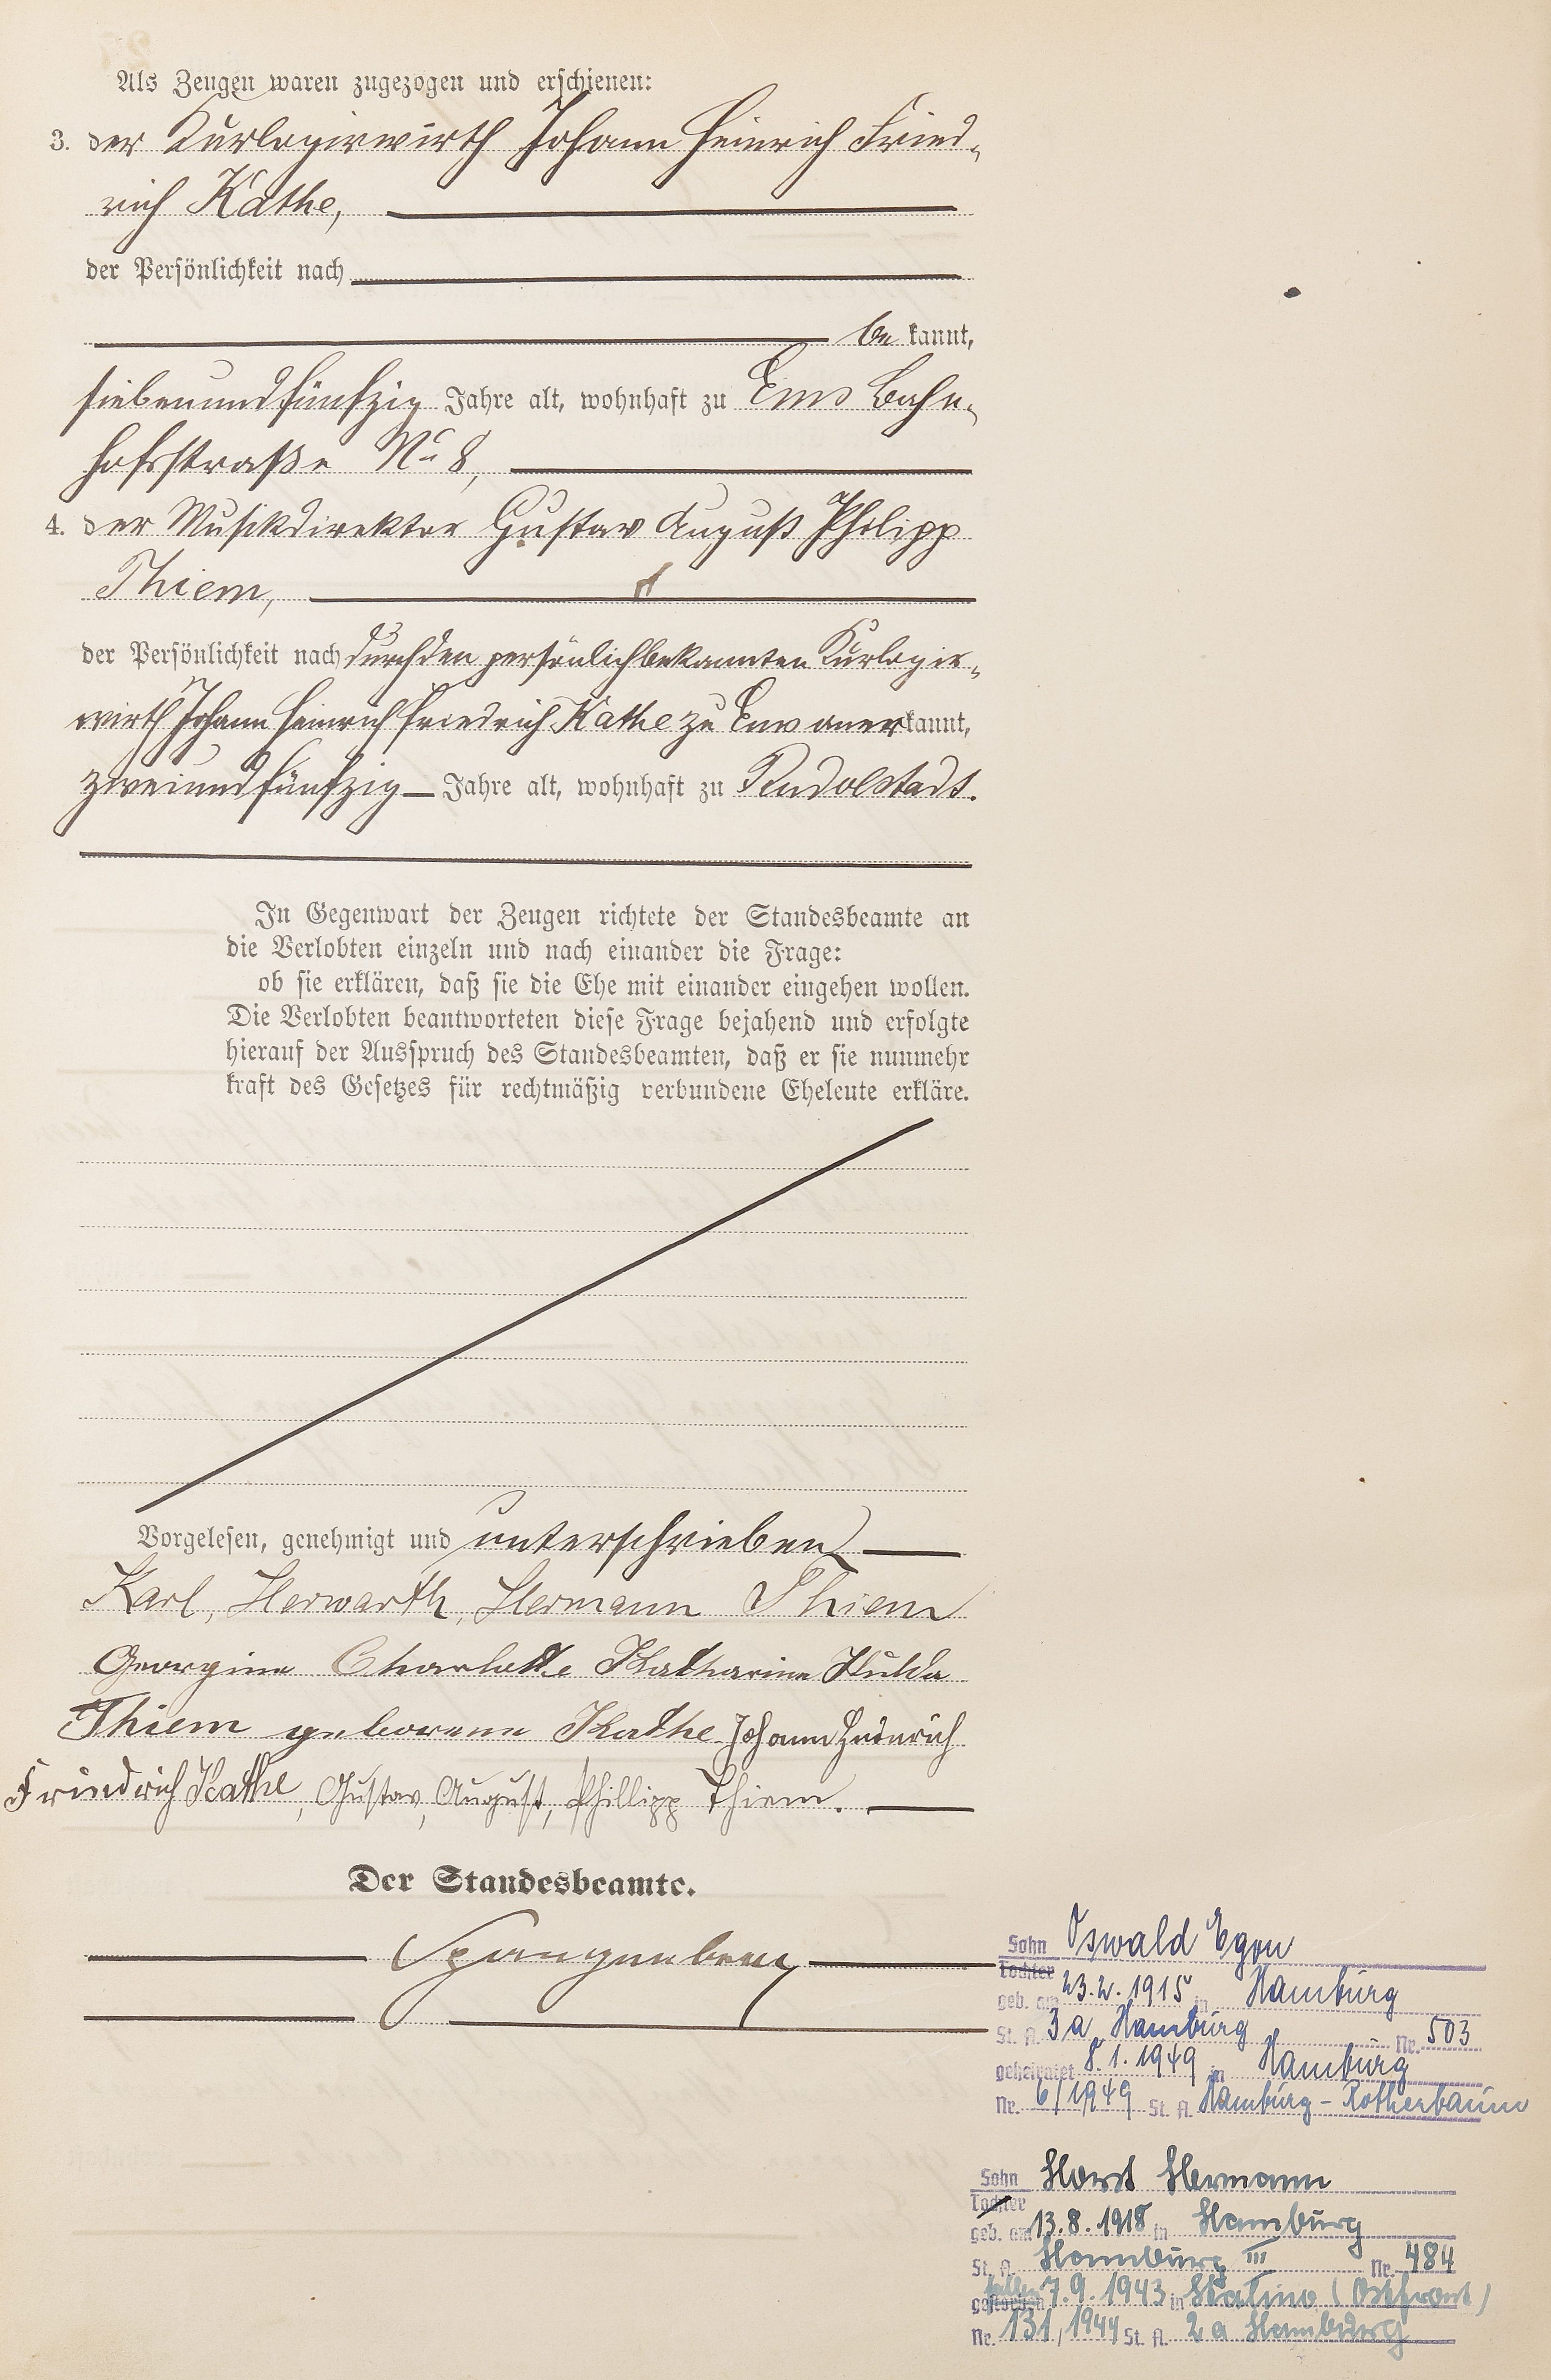 Als Zeugen waren zugezogen und erschienen:
3. der Kurlogirwirth Johann Heinrich Fried-
rich Käthe,
der Persönlichkeit nach
be kannt,
siebenundfünfzig Jahre alt, wohnhaft zu Ems Bahn-
hofsstraße No 8,
4. der Musikdirektor Gustav August Philipp
Thiem,
der Persönlichkeit nach durch den persönlich bekannten Kurlogir-
wirth Johann Heinrich Friedrich Käthe zu Ems anerkannt,
zweiundfünfzig Jahre alt, wohnhaft zu Rudolstadt.
In Gegenwart der Zeugen richtete der Standesbeamte an
die Verlobten einzeln und nach einander die Frage:
ob sie erklären, daß sie die Ehe mit einander eingehen wollen.
Die Verlobten beantworteten diese Frage bejahend und erfolgte
hierauf der Ausspruch des Standesbeamten, daß er sie nunmehr
kraft des Gesetzes für rechtmäßig verbundene Eheleute erkläre.
Vorgelesen, genehmigt und unterschrieben
Karl, Herwarth, Hermann Thiem
Georgine Charlotte Katharine Hulda
Thiem geborene Kathe Johann Heinrich
Friedrich Kathe, Gustav, August, Phillipp Thiem.
Der Standesbeamte.
Spangenberg
Sohn Oswald Egon
Tochter
geb. am 23.2.1915 in Hamburg
St. A. 3a Hamburg Nr. 503
geheiratet 8.1.1949 in Hamburg
Nr. 6/1949 St. A. Hamburg-Rotherbaum
Sohn Horst Hermann
Tochter
geb. am 13.8.1918 in Hamburg
St. A. Hamburg III Nr. 484
gefallen 7.9.1943 in Stalino (Ostfront)
Nr. 131/1944 St. A. 2a Hamburg